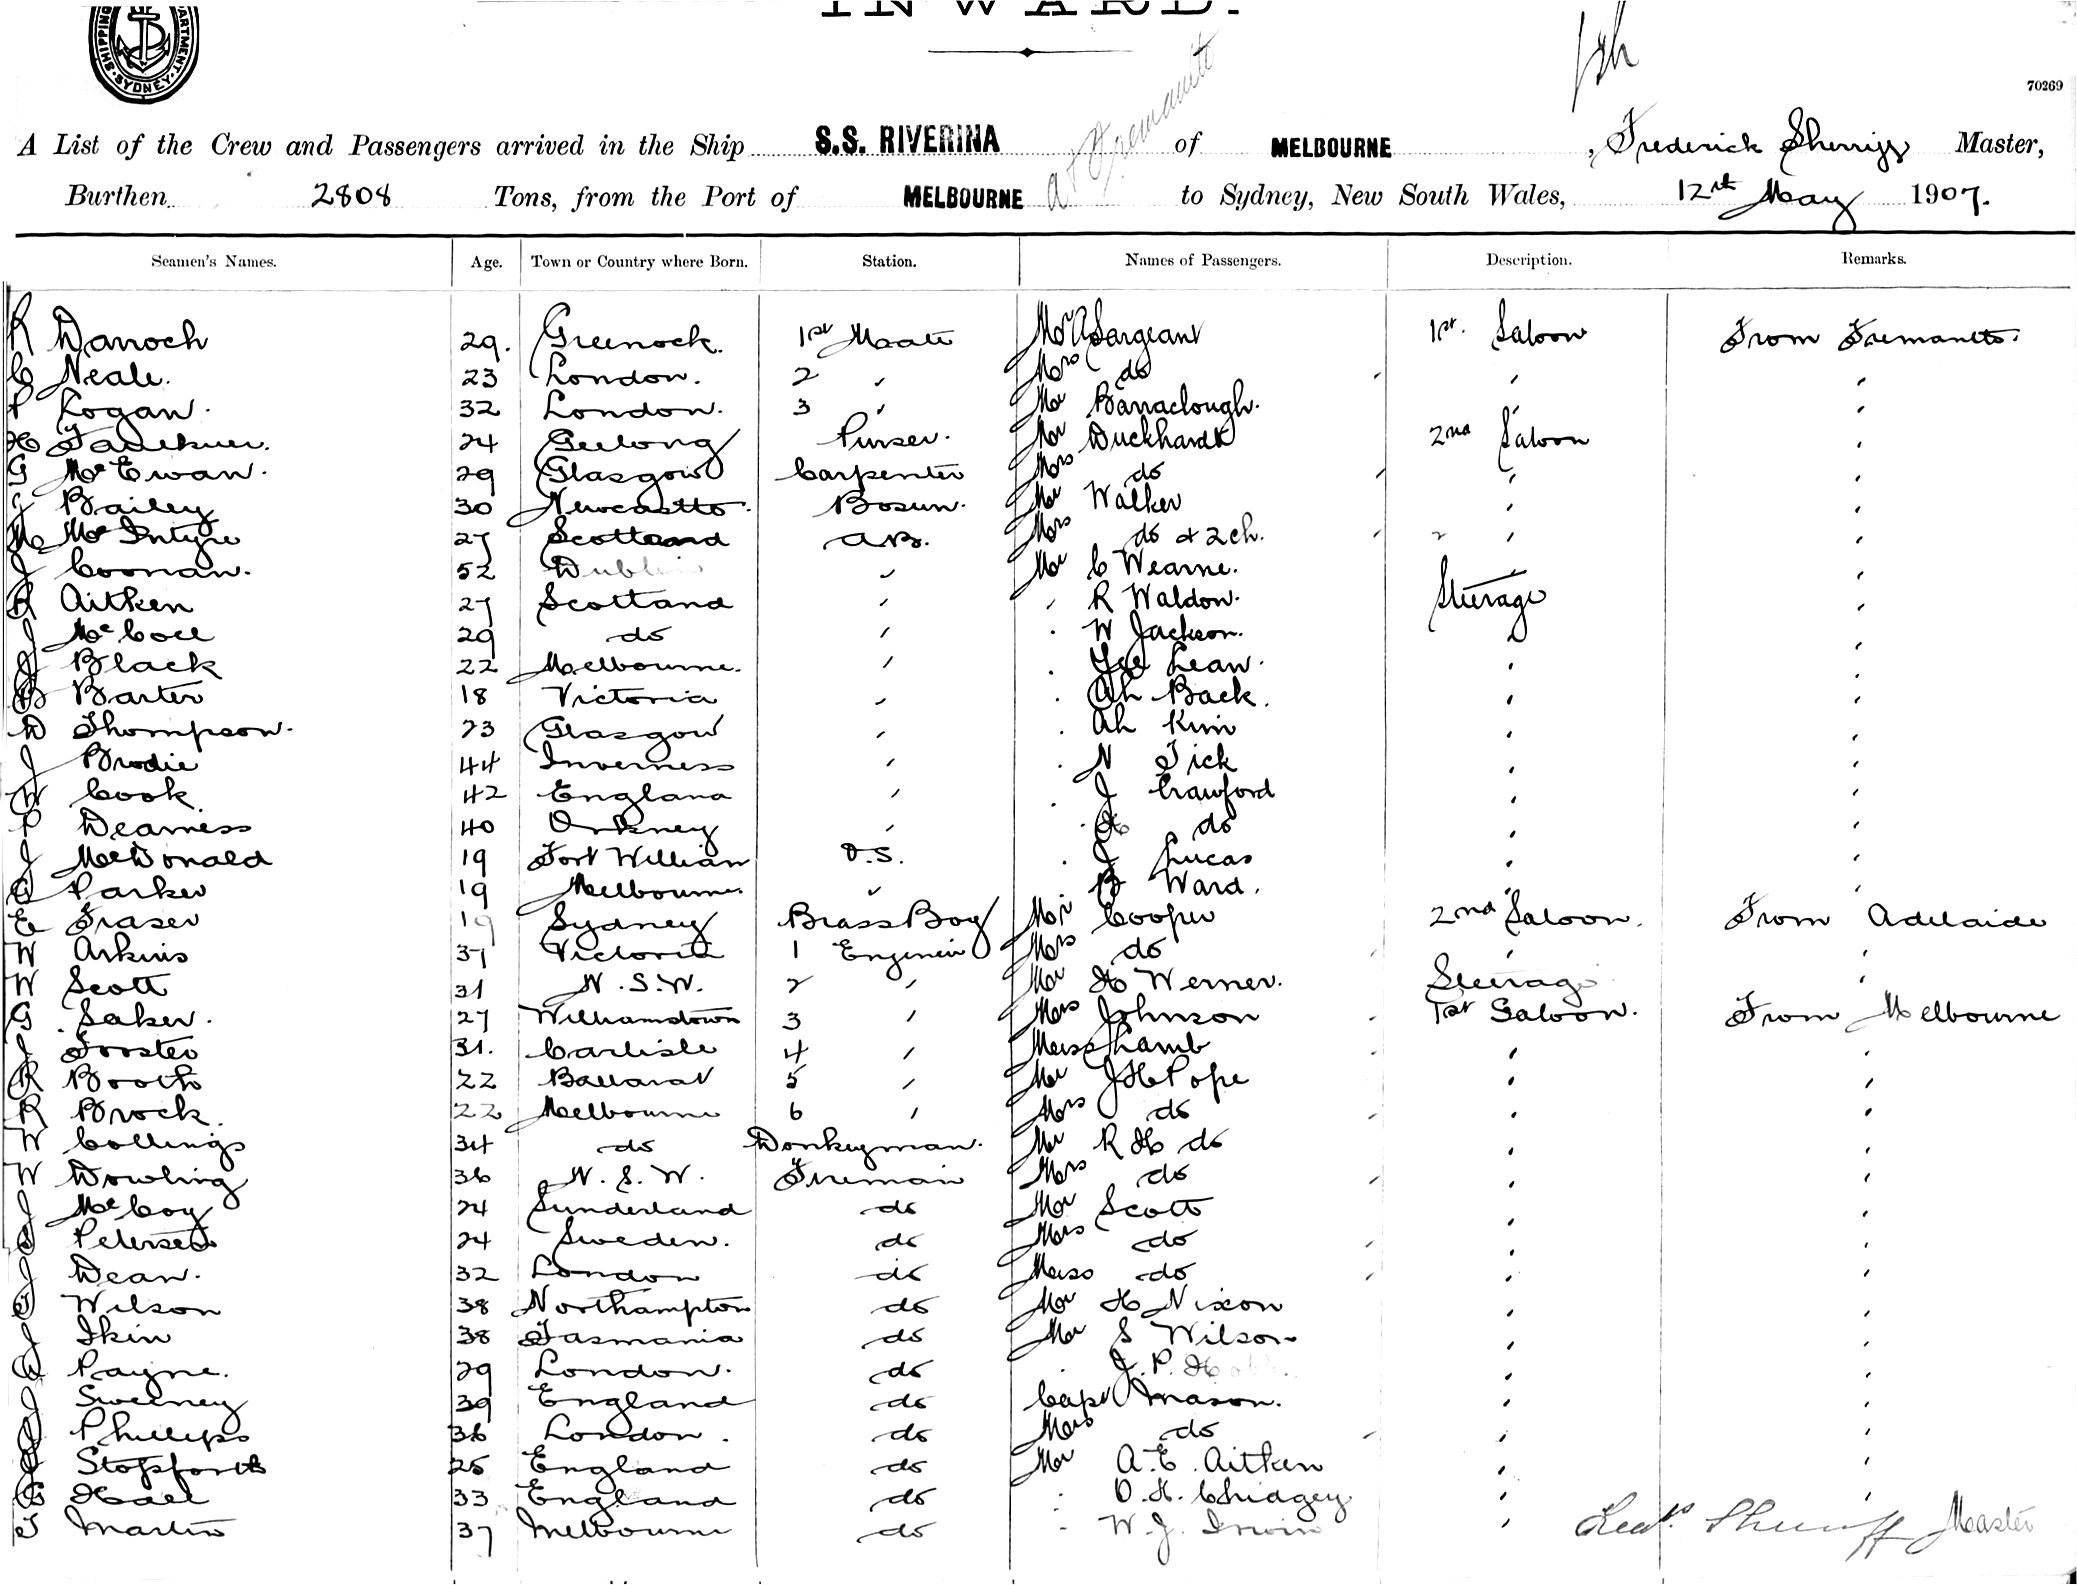 INWARD.
SHIPPING DEPARTMENT. SYDNEY.
70269
A List of the Crew and Passengers arrived in the Ship S.S. RIVERINA of MELBOURNE, Frederick Sherriff Master,
at Fremantle
Burthen 2808 Tons, from the Port of MELBOURNE to Sydney, New South Wales, 12th May 1907.
Seamen's Names. Age. Town or Country where Born. Station. Names of Passengers. Description. Remarks.
R Darroch 29. Greenock. 1st Mate Mr A Sargeant 1st. Saloon From Fremantle.
C Neale. 23 London. 2 " Mrs do " "
P Logan. 32 London. 3 " Mr Barraclough. " "
H Faulkner. 24 Geelong Purser. Mr Duckhardt 2nd Saloon "
G McEwan. 29 Glasgow Carpenter Mrs do " "
J Bailey 30 Newcastle. Bosun. Mr Walker " "
M McIntyre 27 Scotland A.B. Mrs do & 2 ch. " "
J Coonan. 52 Dublin " Mr C Wearne. " "
R Aitken 27 Scotland " " R Waldon. Steerage "
J McColl 29 do " " W Jackson. " "
J Black 22 Melbourne. " " Yee Lean. " "
B Barter 18 Victoria " " Ah Back. " "
D Thompson. 23 Glasgow " " Ah Kim " "
J Brodie 44 Inverness " " N Tick " "
W Cook 42 England " " J Crawford " "
P Dearness 40 Orkney " " H do " "
J McDonald 19 Fort William O.S. " J Lucas " "
G Parker 19 Melbourne. " B Ward. " "
E Fraser 19 Sydney Brass Boy Mr Cooper 2nd Saloon. From Adelaide
W Arkins 37 Victoria 1 Engineer Mrs do " "
W Scott 31 N.S.W. 2 " Mr H Werner. Steerage "
G. Saker. 27 Williamstown 3 " Mrs Johnson 1st Saloon. From Melbourne
J Forster 31. Carlisle 4 " Miss Lamb " "
R Booth 22 Ballarat 5 " Mr J H Pope " "
R Brock. 22 Melbourne 6 " Mrs do " "
W Collings 34 do Donkeyman. Mr R H do " "
W Dowling 36 N.S.W. Fireman Mrs do " "
J McCoy 24 Sunderland do Mr Scott " "
S Petersen 24 Sweden. do Mrs do " "
J Dean. 32 London do Miss do " "
T Wilson 38 Northampton do Mr H Nixon " "
J Ikin 38 Tasmania do Mr S Wilson " "
A Payne. 29 London. do " J. P. " "
J Sweeney 39 England do Capt Mason. " "
J Phillips 36 London. do Mrs do " "
J Stopforth 25 England do Mr A.E. Aitken " "
G Hall 33 England do " O.H. Chidgey " "
T Martin 37 Melbourne do " W.J. Irwin " Fredk. Sherriff Master